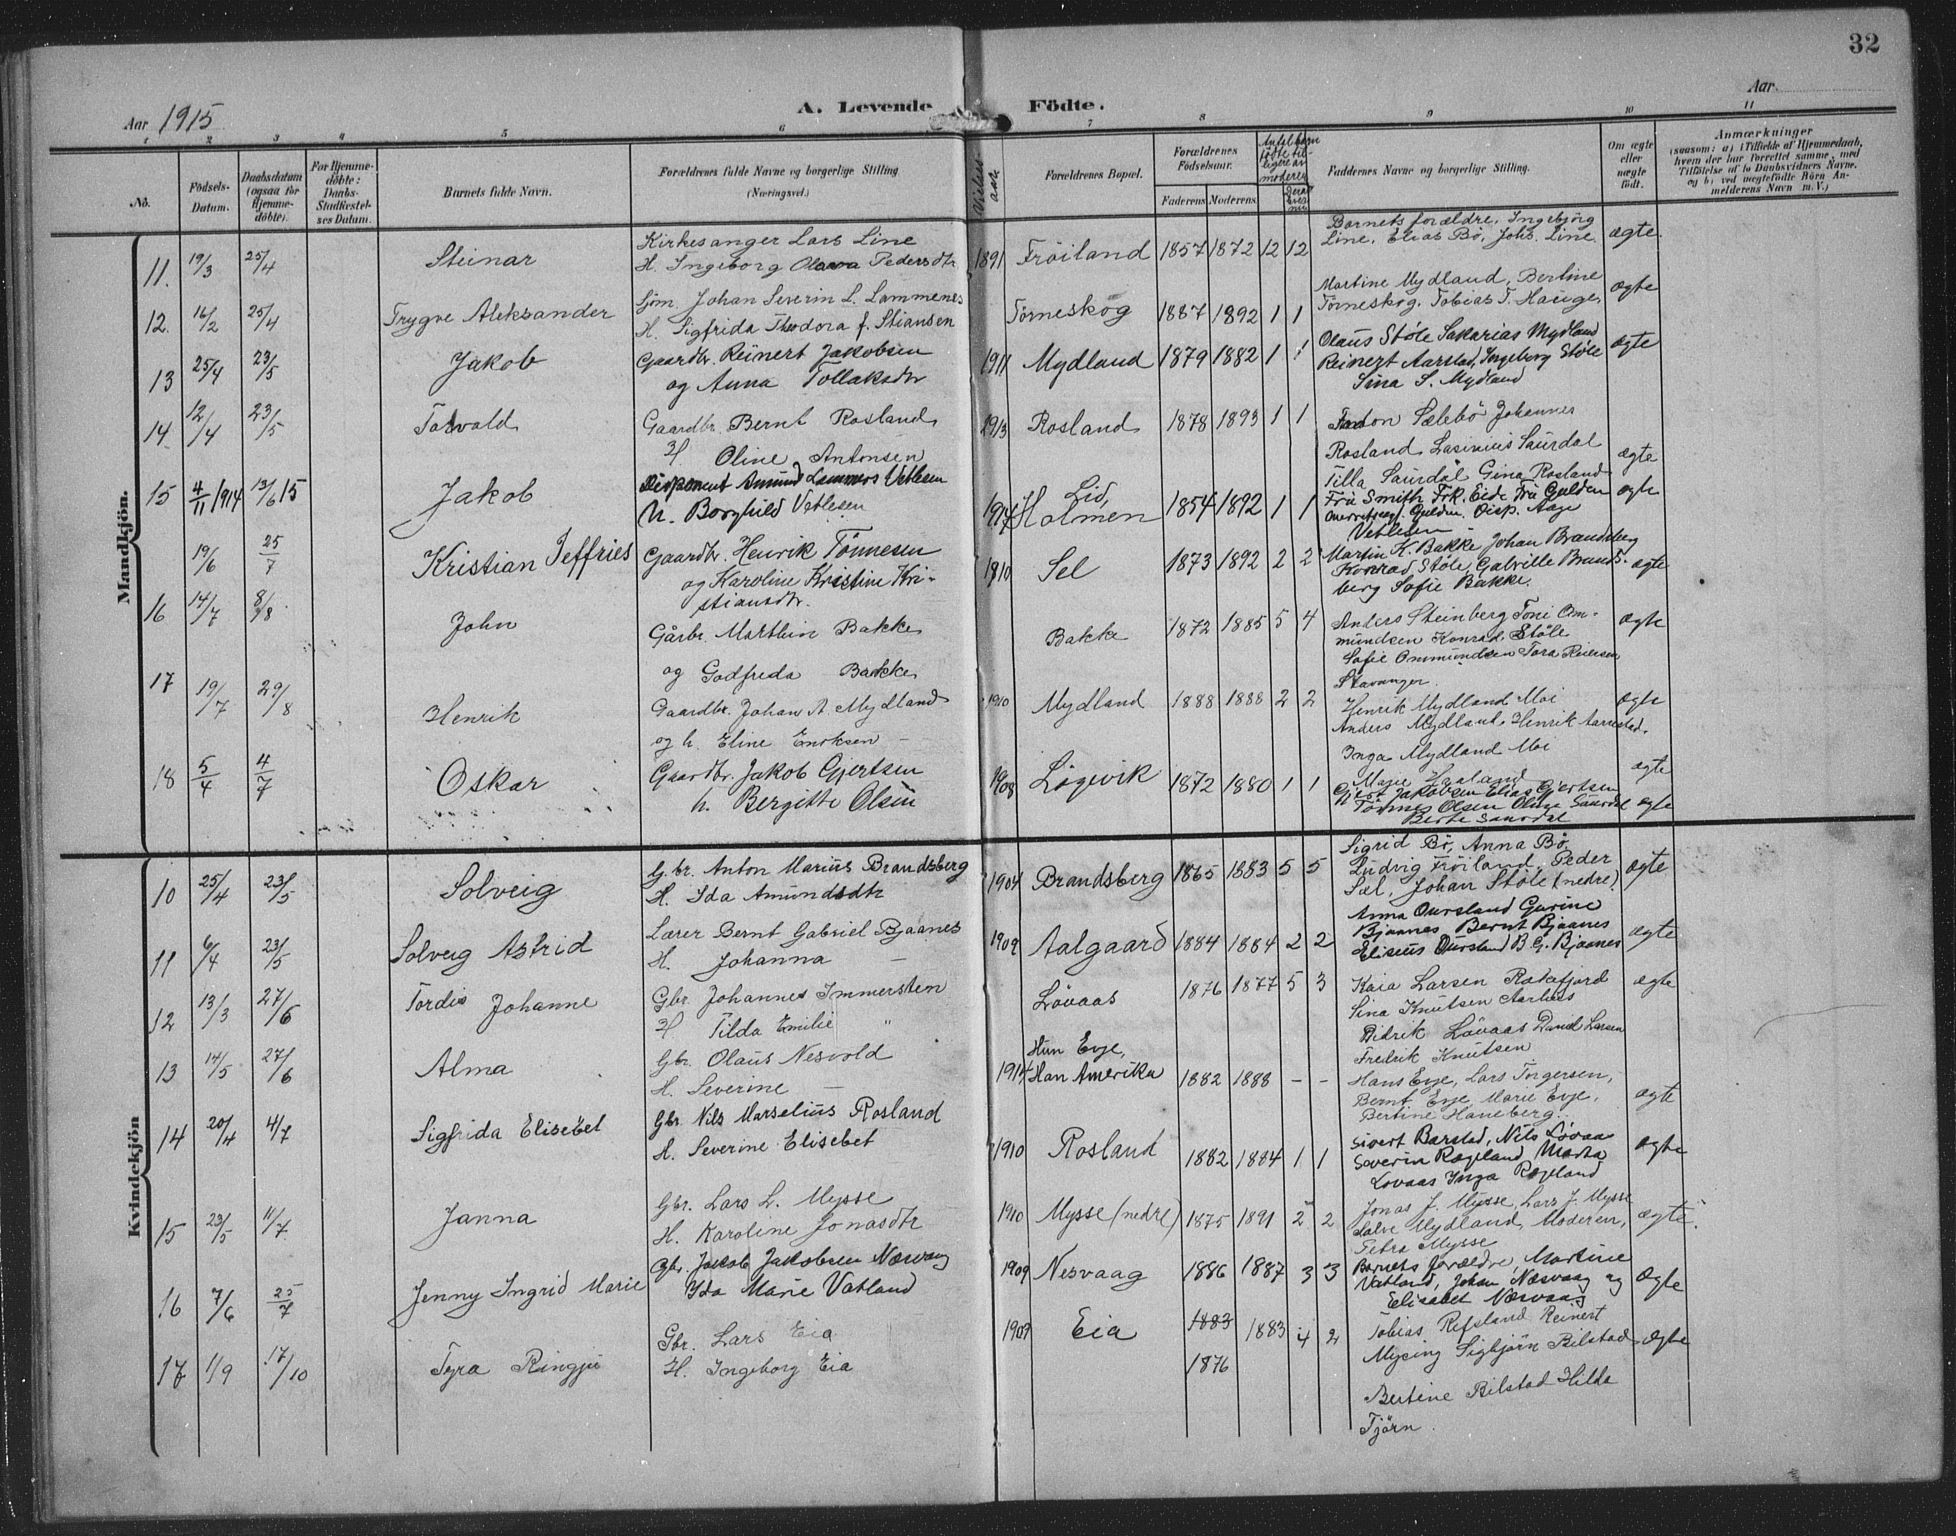 32
Aar 1915
A. Levende Födte.
Aar
1 2 3 4 5 6 7 8 9 10 11
No.
Födsels-Datum.
Daabsdatum (ogsaa for Hjemmedöbte).
For Hjemmedöbte: Daabs-Stadfæstelses Datum.
Barnets fulde Navn.
Forældrenes fulde Navne og borgerlige Stilling (Næringsvei.)
Vielses aar
Forældrenes Bopæl.
Forældrenes Födselsaar.
Faderens. Moderens.
Antal barn födte tidligere av moderen
Faddernes Navne og borgerlige Stilling.
Om ægte eller uægte födt.
Anmærkninger (saasom: a) i Tilfælde af Hjemmedaab, hvem der har forrettet samme, med Tilföielse af to Daabsvidners Navne, og b) ved uægtefödte Börn Anmelderens Navn m. V.)
Mandkjön.
11. 19/3 25/4 Steinar
Kirkesanger Lars Line
H. Ingeborg Olava Pedersdtr
1891 Fröiland 1857 1872 12 12
Barnets forældre, Ingebjörg
Line, Elias Bö, Johs. Line
ægte.
12. 16/2 25/4 Trygve Aleksander
Sjöm. Johan Severin L. Lammenes
H. Sigfrida Theodora f. Stiansen
Torneskog 1887 1892 1 1
Martine Mydland, Bertine
Torneskog, Tobias T. Hauge,
ægte
13 25/4 23/5 Jakob
Gaardbr. Reinert Jakobsen
og Anna Tollaksdtr
1911 Mydland 1879 1882 1 1
Olaus Støle Sakarias Mydland
Reinert Aarstad, Ingeborg Støle
Sina S. Mydland
ægte
14. 12/4 23/5 Torvald
Gaardbr. Bernt Rosland
H Oline Antonsen
1913 Rosland 1878 1893 1 1
Anton Sælebö Johannes
Rosland Lasinius Saurdal
Tilla Saurdal Gina Rosland
ægte
15 4/11 1914 13/6 15 Jakob
Disponent Amund Lammers Vetlesen
h. Borghild Vetlesen
1914 Lid, Holmen 1854 1892 1 1
Fru Smith Frk. Eide Fru Gulden
Gulden. Disp. Aage
Vetlesen
ægte
19/6 25/7 Kristian Jeffries
Gaardbr. Henrik Tønnesen
og Karoline Kristine Kri-
stiansdtr.
1910 Sel 1873 1892 2 2
Martin K. Bakke Johan Brandsberg
Konrad Støle, Gabrille Brands-
berg Sofie Bakke.
ægte
16 14/7 8/8 John
Gårbr. Marthin Bakke
og Godfreda Bakke
Bakke 1872 1885 5 4
Anders Steinberg Toni Om-
mundsen Konrad Støle
Sofie Ommundsen Tora Reiersen
Stavanger.
ægte
17 19/7 29/8 Henrik
Gaardbr. Johan A. Mydland
og h. Eline Eriksen -
1910 Mydland 1888 1888 2 2
Henrik Mydland Moi
Anders Mydland. Henrik Aarrestad.
Inga Mydland Moi
ægte
18 5/4 4/7 Oskar
Gaardbr. Jakob Gjertsen
h. Bergitte Olsen
1908 Løgevik 1872 1880 1 1
Marie Haaland
Gjert Jakobsen Elias Gjertsen
Tønnes Olsen Oline Saurdal
Berte Saurdal
ægte
ægte
Kvindekjön
10 25/4 23/5 Solveig
G.br. Anton Marius Brandsberg
H. Ida Amundsdtr
1904 Brandsberg 1865 1883 5 5
Sigrid Bö, Anna Bö,
Ludvig Fröiland, Peder
Sæl, Johan Støle (nedre)
ægte
11 6/4 23/5 Solveig Astrid
Lærer Bernt Gabriel Bjaanes
H. Johanna —
1909 Aalgaard 1884 1884 2 2
Anna Oursland Gurine
Bjaanes Bernt Bjaanes
Eliseus Oursland B. G. Bjaanes
ægte
12 13/3 27/6 Tordis Johanne
Gbr. Johannes Immersten
H Tilda Emilie "
Lövaas 1876 1877 5 3
Kaia Larsen Rækefjord
Sina Knutsen Aarhus
Didrik Lövaas Daniel Larsen
Fredrik Knutsen
ægte
13 14/5 27/6 Alma
Gbr. Olaus Nesvold
H. Severine —
1914 Hun Evje, Han Amerika 1882 1888 - -
Hans Evje, Lars Torgersen,
Bernt Evje, Marie Evje,
Bertine Haneberg.
ægte
14 20/4 4/7 Sigfrida Elisebet
Gbr. Nils Marselius Rosland
H. Severine Elisebet
1910 Rosland 1882 1884 1 1
Sivert Barstad, Nils Lövaas
Severin Rægeland, Marta
Lovaas Inga Rægeland
ægte
15 23/5 11/7 Janna
Gbr. Lars L. Mysse
H. Karoline Jonasdtr
1910 Mysse (nedre) 1875 1891 2 2
Jonas J. Mysse, Lars J. Mysse
Salve Mydland, Moderen,
Petra Mysse
ægte.
16 7/6 25/7 Jenny Ingrid Marie
Gbr. Jakob Jakobsen Næsvaag
Ida Marie Vatland
1909 Nesvaag 1886 1887 3 3
Barnets forældre, Martine
Vatland, Johan Næsvaag og
Elisabet Næsvaag
Ægte
17 1/9 17/10 Tyra Ringju
Gbr. Lars Eia
H. Ingeborg Eia
1909 Eia 1883 1876 1883 4 2
Tobias Refsland Reinert
Mysing Sigbjörn Bilstad
Bertine Bilstad Hilda
Tjörn.
Ægte